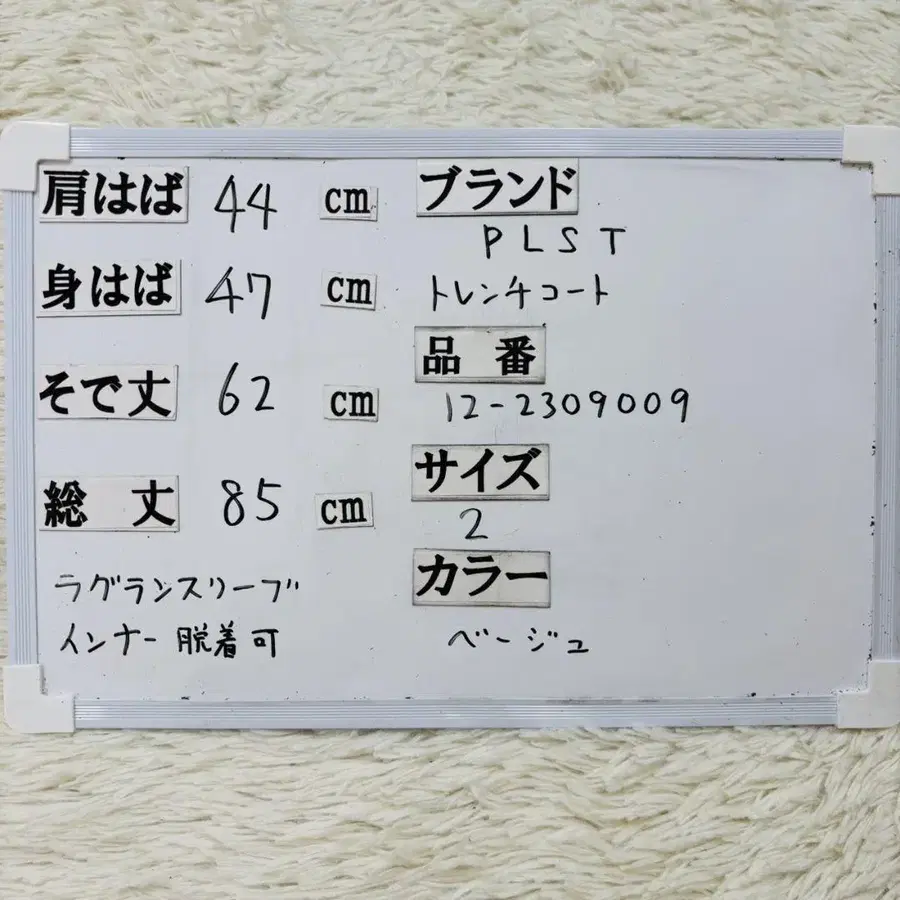 肩はば 44 cm
身はば 47 cm
そで丈 62 cm
総 丈 85 cm
ラグランスリーブ
インナー脱着可
ブランド
PLST
トレンチコート
品 番
12-2309009
サイズ
2
カラー
ベージュ